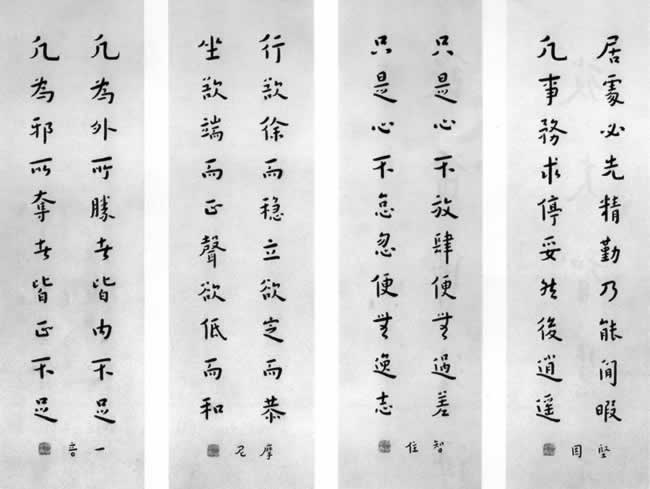 居處必先精勤乃能閒暇
凡事務求停妥然後逍遙
堅固
只是心不放肆便無過差
只是心不怠忽便無逸志
智住
行欲徐而穩立欲定而恭
坐欲端而正聲欲低而和
摩尼
凡為外所勝者皆內不足
凡為邪所奪者皆正不足
一音